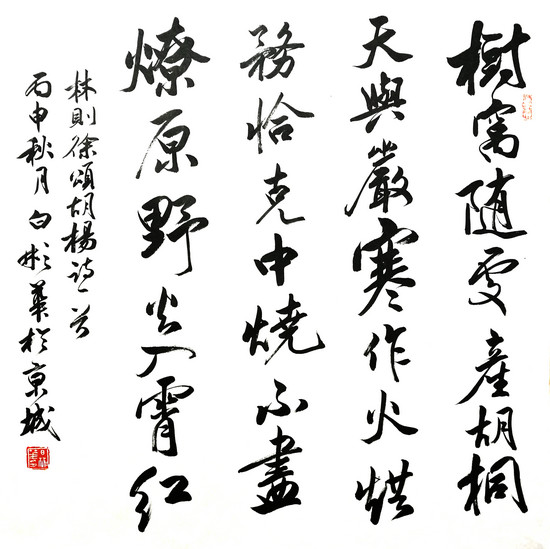 樹窩随處產胡桐
天與嚴寒作火烘
務恰克中燒不盡
燎原野火入霄紅
林則徐頌胡楊詩一首
丙申秋月白彬華於京城